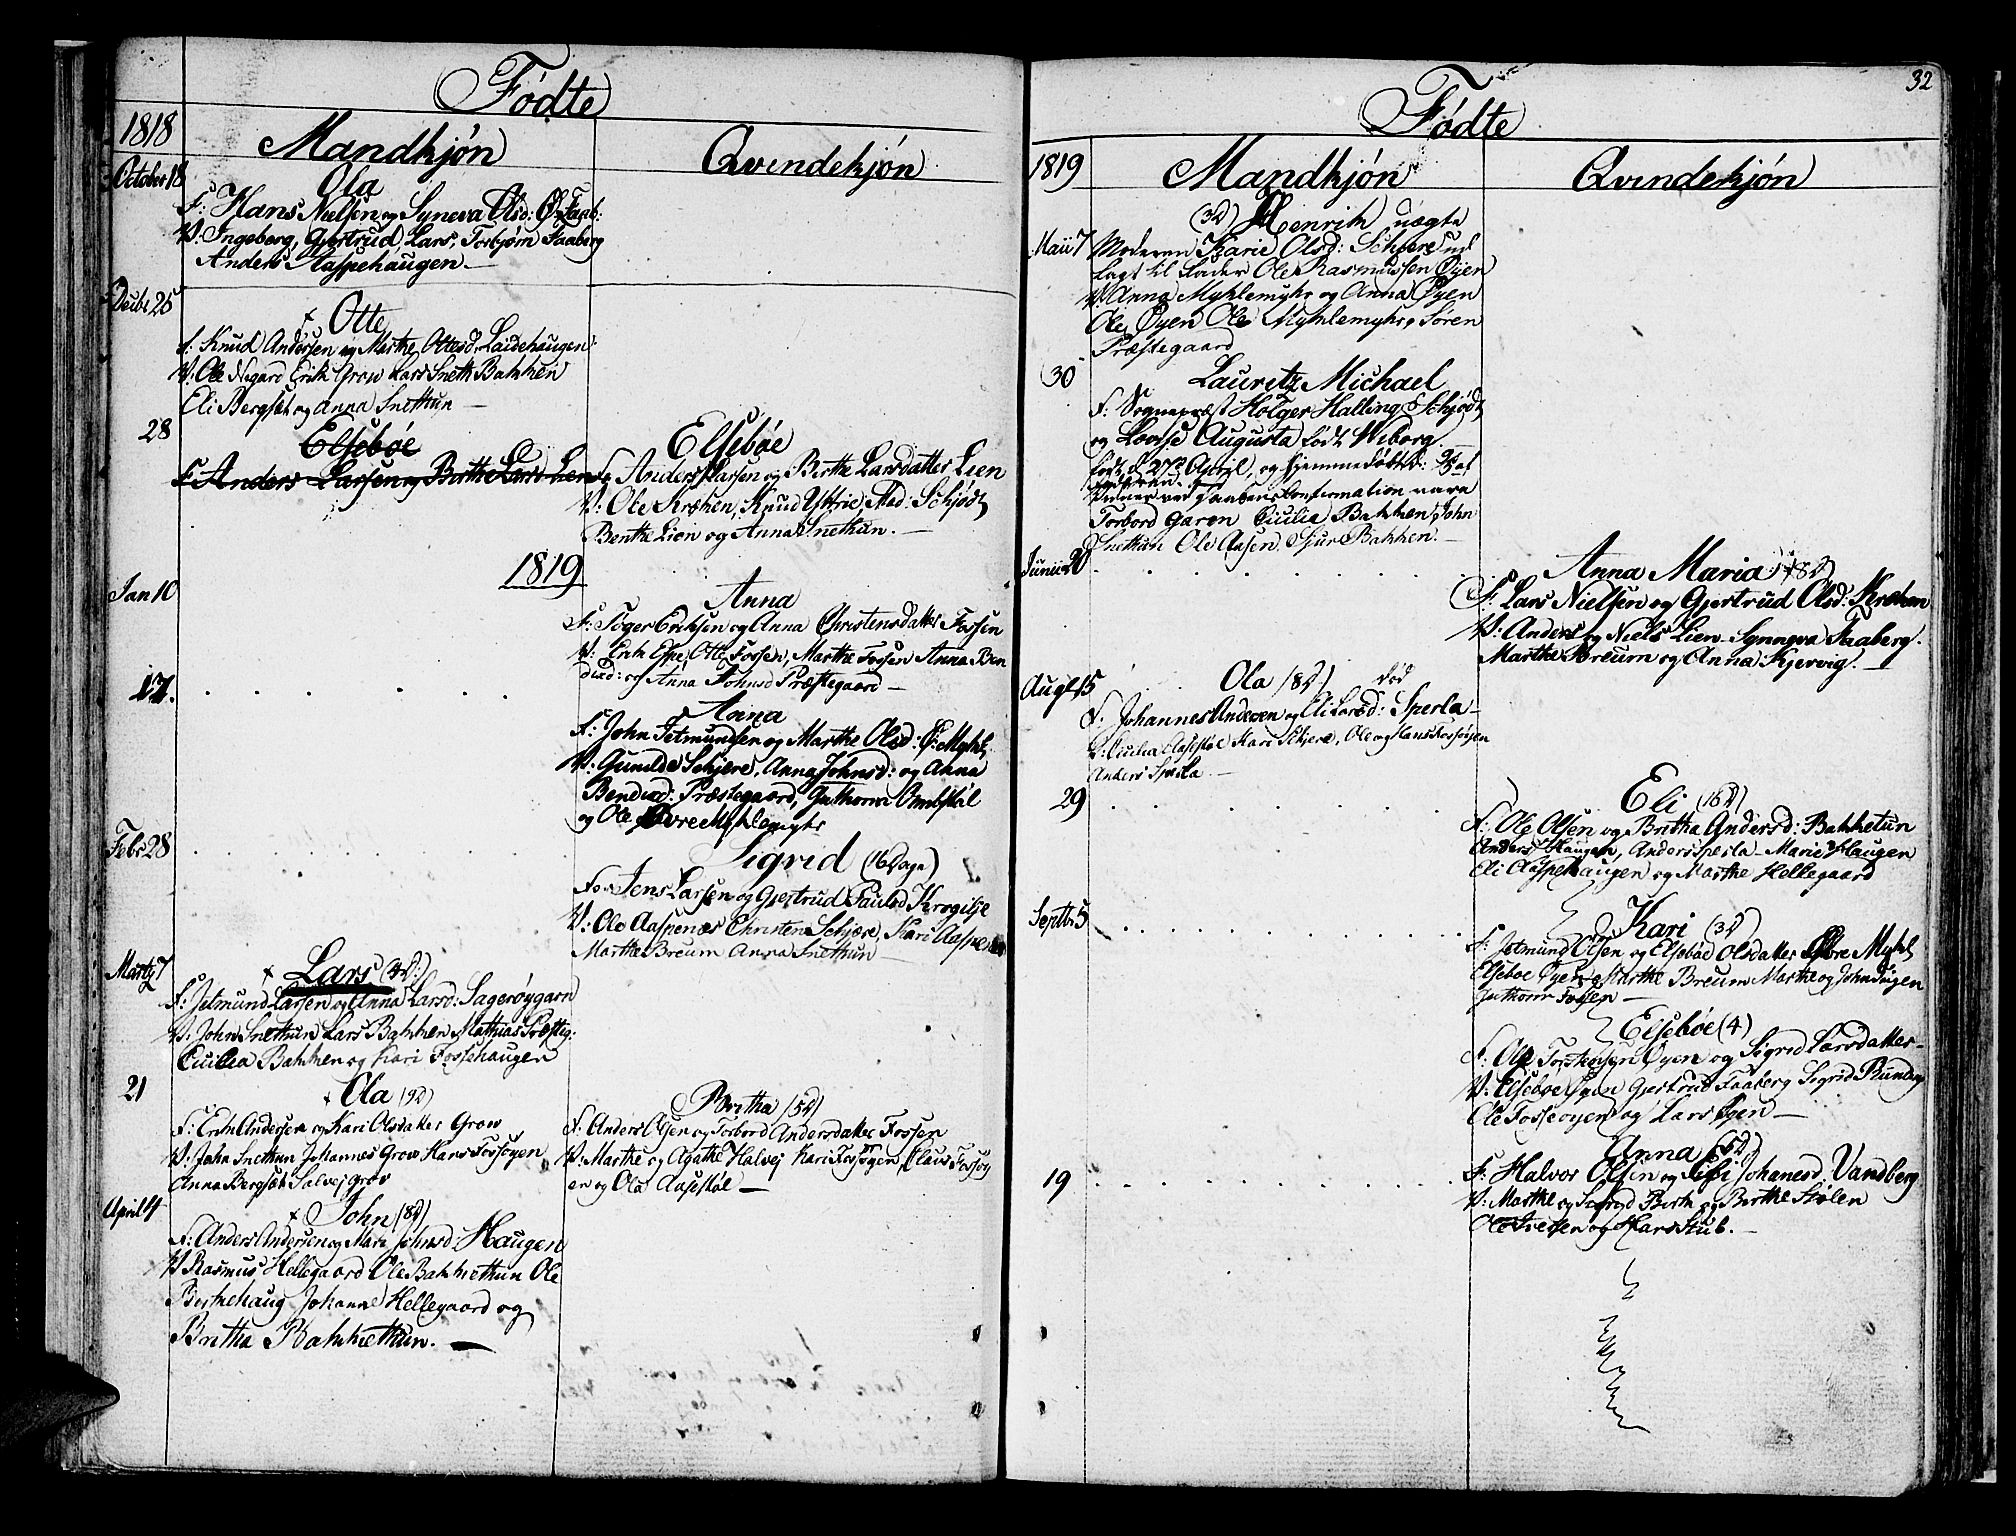 Fødte
1818
Mandkjón
Qvindekjón
October 18
Ola
F: Hans Nielsen og Syneva Olsd:
V: Ingeborg, Gjertrud, Lars, Torbjørn Faaberg
Anders Aaspehaugen —
Decbr 25
+ Otte
f: Knud Andersen og Marthe Ottesd: Laidehaugen
V: Ole Negard Erik Grow Lars Sneth Bakken
Eli Bergset og Anna Snethun —
28
Elsebøe
F: Anders Larsen og Birthe Larsd Lien
Elsebøe
F: Anders Larsen og Birthe Larsdatter Lien
V: Ole Kroken, Knud Yttrie, Mad: Schjødt
Benthe Lien og Anna Snethun. —
1819
Jan 10
Anna
F: Tøger Eriksen og Anna Christensdatter Fossen
V: Erik Espe, Otte Fossen, Marthe Fossen Anna Ben
dixd: og Anna Johnsd Præstegaard —
17.
Anna
F: John Jetmundsen og Marthe Olsd: Ø: Myhl,
V: Gunilde Schjere, Anna Johnsd: og Anna
Bendixd: Præstegaard, Guthorm
og Ole Øvre Myhlemyhr
Febr 28
Sigrid (16 Dage)
For: Jens Larsen og Gjertrud Paulsd Krogilje
V: Ole Aaspenæs Christen Schjere, Kari Aaspe
Marthe Breum Anna Snethun —
Marty 7
+ Lars (3d:)
F: Jetmund Larsen og Anna Larsd: Sagerøygarn
V: John Snethun Lars Bakken Mathias Præsteg:
Cicilia Bakken og Kari Fossehaugen
21
+ Ola (9d)
F: Erik Andersen og Kari Olsdatter Grow
V: John Snethun Johannes Grow Hans Fossøyen
Anna Bergset Salvej Grov
Britha (5d)
F: Anders Olsen og Torbord Andersdatter Fossen
V: Marthe og Agathe Halvej Kari Fossøyen, Claus Fossøy
en og Ola Aasestøl —
April 4
+ John (8d)
F: Anders Andersen og Mari Johnsd: Haugen
V Rasmus Hellegaard Ole Bakkethun Ole
Bertnehaug Johanne Hellegaard og
Britha Bakkethun. —
32
Fødte
1819
Mandkjón
Qvindekjón
Maii 7
(3d) Henrik uægte
Moderen Karie Olsd: Schjere ud
lagt til fader Ole Rasmussen Øyen
V: Anna Myhlemyhr og Anna Øyen
Ole Øyen Ole Myhlemyhr, Søren
Præstegaard
30
Lauritz Michael
F: Sognepræst Holger Halling Schjødt
og Lovise Augusta født Wiborg. —
født d 27de April, og hjemmedøbt
Vidner ved Daabens Confirmation vare
Torbord Garen Cicilia Bakken, John
Snethun Ole Aasen. Sjur Bakken. —
Junii 20
Anna Maria (8d)
F: Lars Nielsen og Gjertrud Olsd: Kroken
V: Anders og Niels Lien. Synneva Faaberg.
Marthe Breum og Anna Kjervig. —
Augt 15
Ola (8d) død
F: Johannes Andersen og Eli Larsd: Sperla —
V: Cicilia Aasestøl Kari Schjere, Ole og Hans Fossøyen
Anders Sperla —
29
Eli (16d)
F: Ole Olsen og Britha Andersd: Bakketun
Anders Haugen, Anders Sperla — Marie Haugen
Eli Aaspehaugen og Marthe Hellegaard
Septb 5
Kari (3d)
F: Jetmund Olsen og Elsebød Olsdatter Øvre Myhl
Elseboe Øyen, Marthe Breum Marthe og John
Guthorm Fossen —
Elsebøe (4)
F: Ole Torstensen Øyen og Sigrid Larsdatter —
V: Elseboe Øyen Gjertrud Faaberg Sigrid
Ole Fosseøyen og Lars Øyen —
19
Anna (6d)
F: Halvor Olsen og Johanesd. Vandberg
V: Marthe og Birthe Stølen
Ole og Hans Stub. —